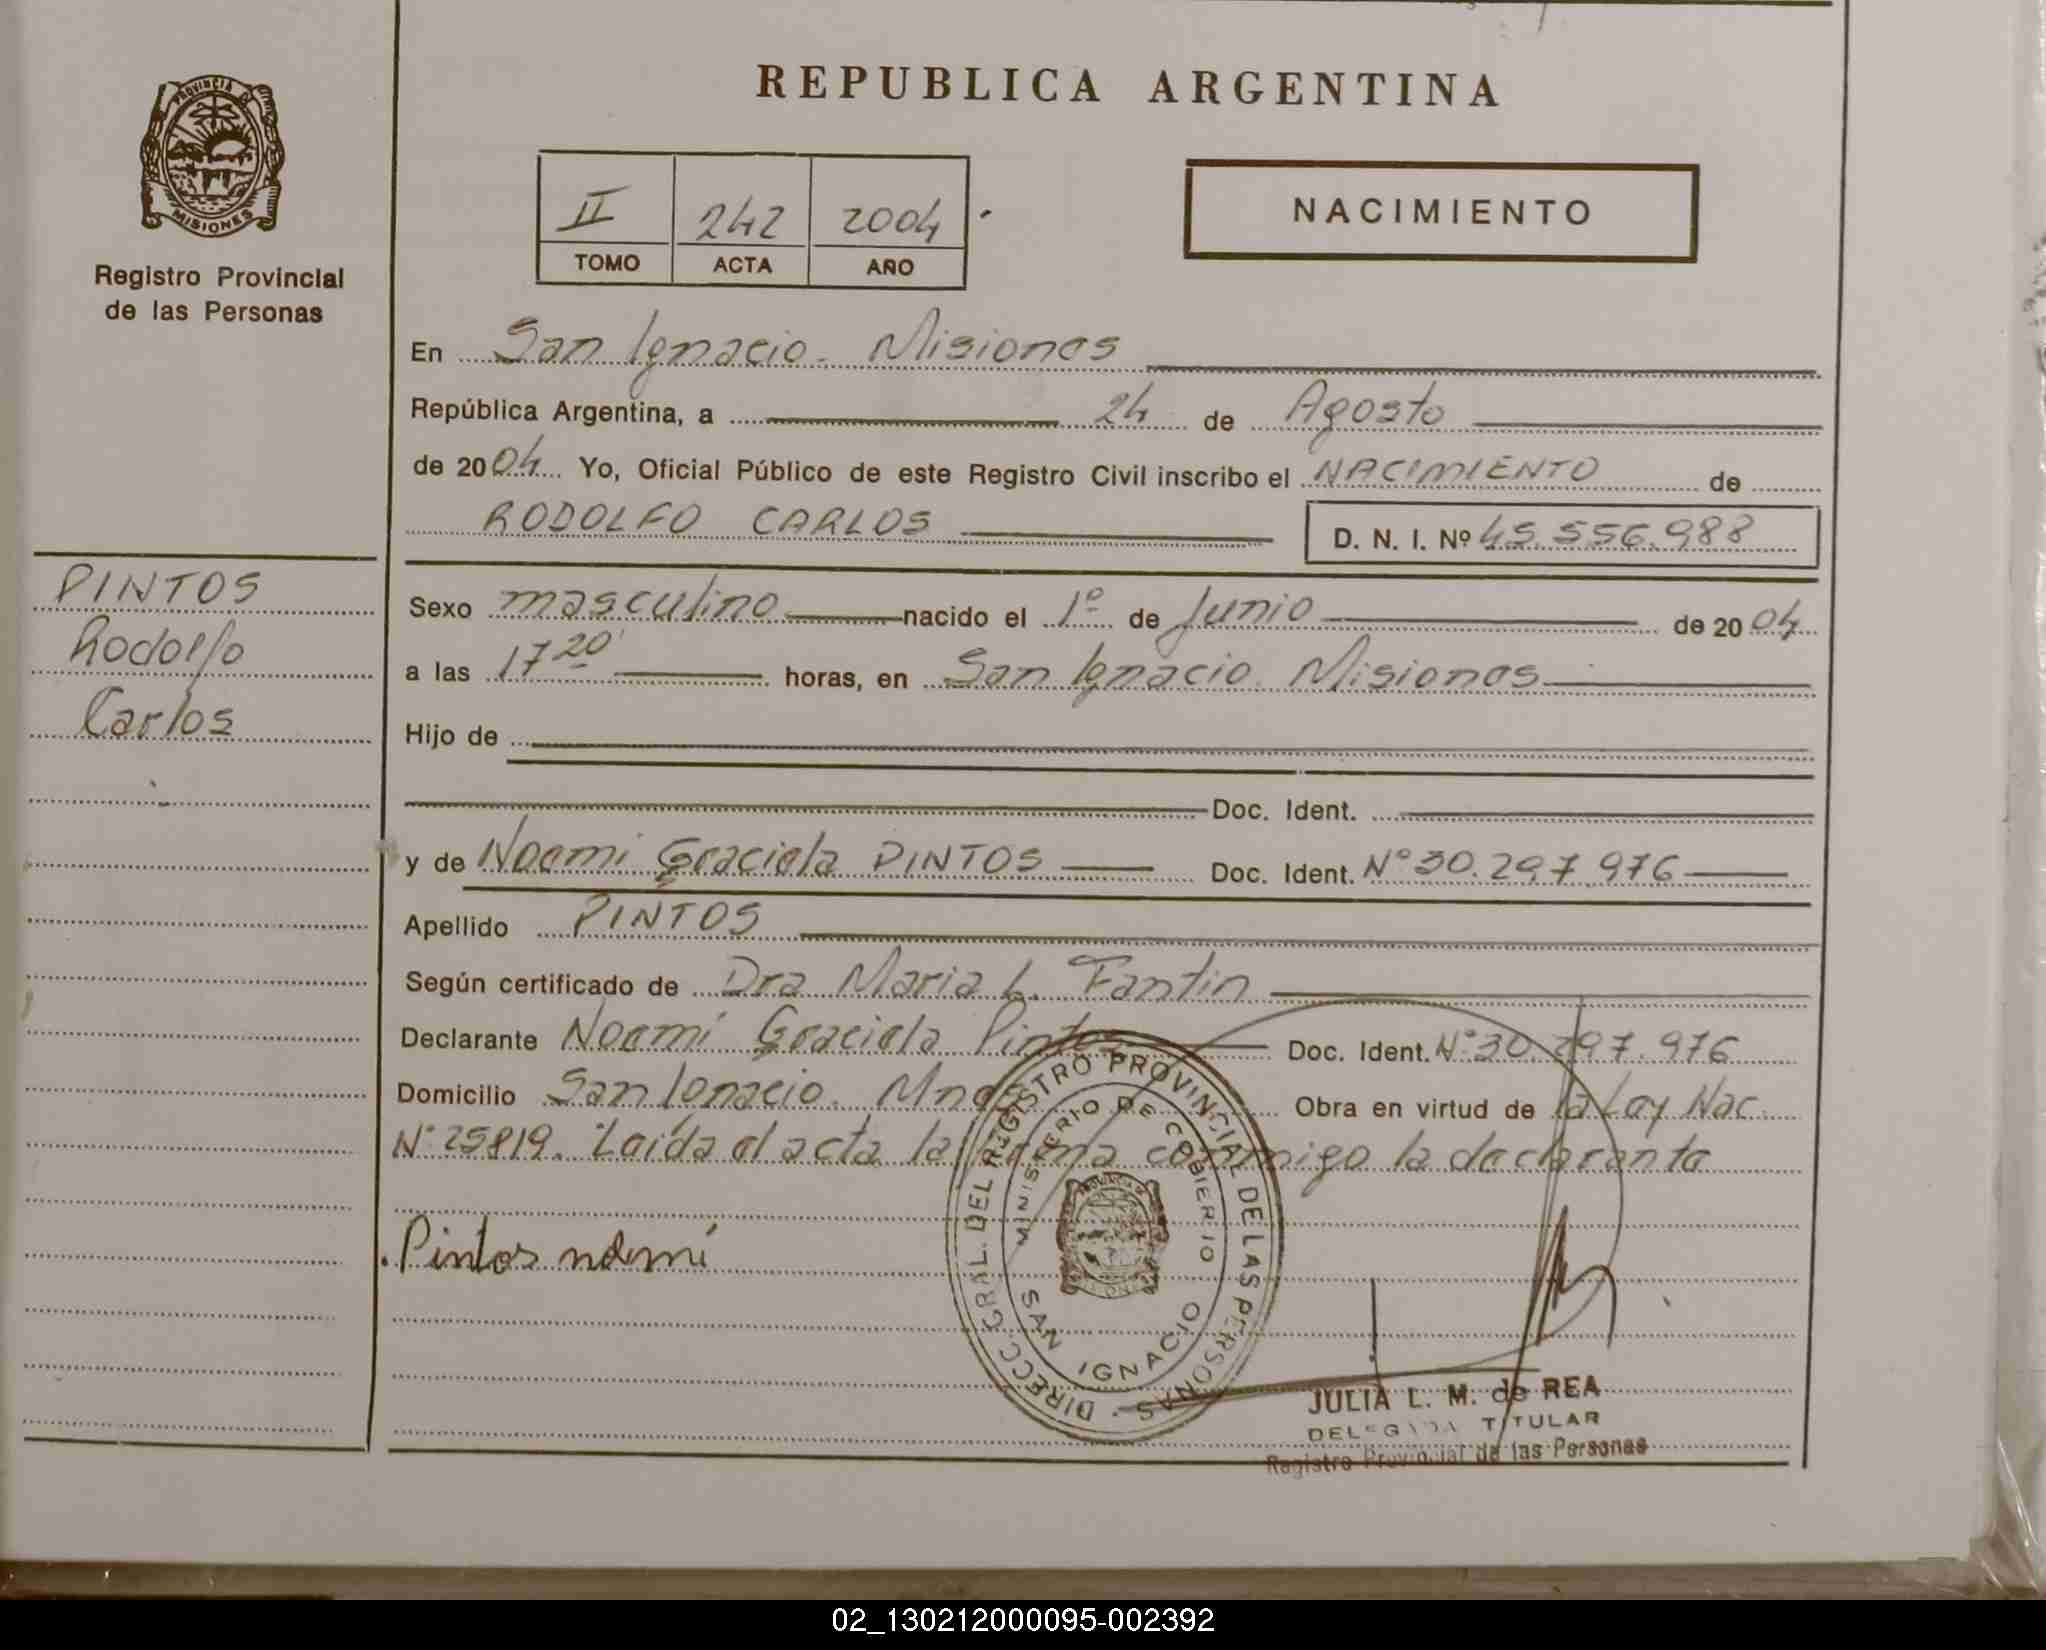 REPUBLICA ARGENTINA
PROVINCIA DE
MISIONES
Registro Provincial
de las Personas
II 242 2004
TOMO ACTA AÑO
NACIMIENTO
En San Ignacio. Misiones
República Argentina, a 24 de Agosto
de 2004 Yo, Oficial Público de este Registro Civil inscribo el NACIMIENTO de
RODOLFO CARLOS D. N. I. Nº 45.556.988
PINTOS
Rodolfo
Carlos
Sexo masculino nacido el 1º de Junio de 2004
a las 17 20' horas, en San Ignacio. Misiones
Hijo de
Doc. Ident.
y de Noemi Graciela PINTOS Doc. Ident. Nº 30.297.976
Apellido PINTOS
Según certificado de Dra Maria L. Fantin
Declarante Noemí Graciela Pintos Doc. Ident. Nº 30.297.976
Domicilio San Ignacio. Mnes Obra en virtud de la Ley Nac.
Nº 25819. Leída el acta la firma conmigo la declarante
Pintos noemí
DIRECC GRAL. DEL REGISTRO PROVINCIAL DE LAS PERSONAS
MINISTERIO DE GOBIERNO
SAN IGNACIO
JULIA L. M. de REA
DELEGADA TITULAR
Registro Provincial de las Personas
02_130212000095-002392